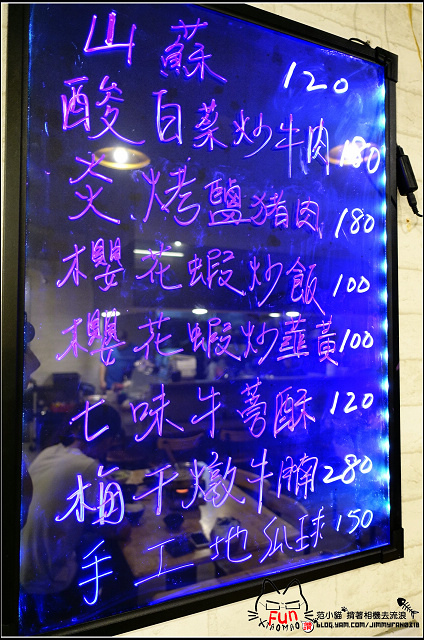 山蘇 120
酸白菜炒牛肉 180
炎烤鹽猪肉 180
櫻花蝦炒飯 100
櫻花蝦炒韮黃 100
七味牛蒡酥 120
梅干燉牛腩 280
手工地瓜球 150
FUN
XIAOMAO
范小貓*揹著相機去流浪
BLOG.YAM.COM/JIMMYFANG210